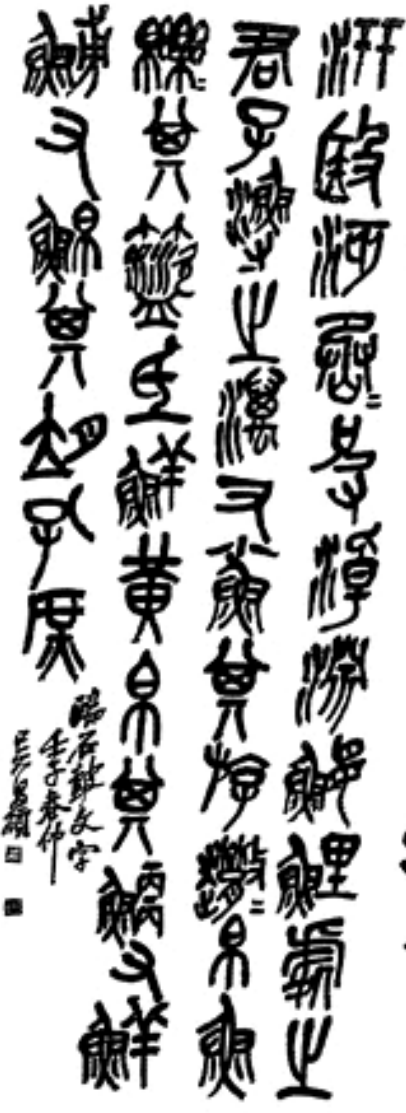 汧殹沔=丞皮淖淵鰋鯉處之
君子漁之澫又小魚其斿=帛魚
其氐鮮黃帛其鯿又
又鮊其孔庶
臨石鼓文字
壬子春仲
吳昌碩